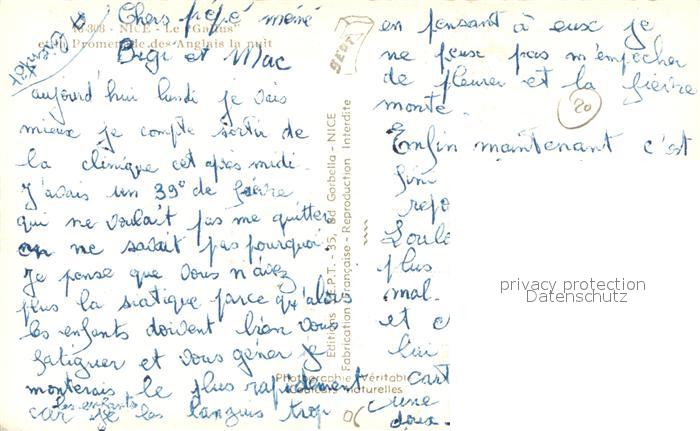 10-308 - NICE - Le "Galius"
et la Promenade des Anglais la nuit
Chers pépé mémé
Bigi et Mac
aujourd'hui lundi je vais
mieux je compte sortir de
la clinique cet après midi.
J'avais un 39° de fièvre
qui ne voulait pas me quitter
on ne savait pas pourquoi.
Je pense que vous n'avez
plus la siatique parce qu'alors
les enfants doivent bien vous
fatiguer et vous gêner je
monterais le plus rapidement
car je les languis trop
les enfants
Editions S.E.P.T. - 35, Bd Gorbella - NICE
Fabrication Française - Reproduction Interdite
SEPT
Photographie Véritable
Couleurs naturelles
en pensant à eux je
ne peux pas m'empêcher
de pleurer et la fièvre
monte.
20
Enfin maintenant c'est
fini
repo
Loulo
plus
mal.
et
lui
cart
une
doux.
06
privacy protection
Datenschutz